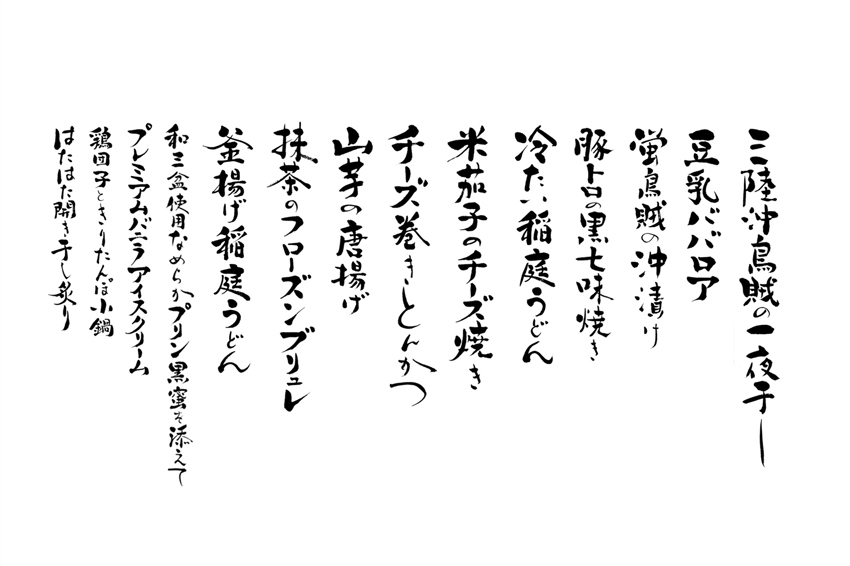 三陸沖烏賊の一夜干し
豆乳ババロア
蛍烏賊の沖漬け
豚トロの黒七味焼き
冷たい稲庭うどん
米茄子のチーズ焼き
チーズ巻きとんかつ
山芋の唐揚げ
抹茶のフローズンブリュレ
釜揚げ稲庭うどん
和三盆使用なめらかプリン黒蜜を添えて
プレミアムバニラアイスクリーム
鶏団子ときりたんぽ小鍋
はたはた開き干し炙り